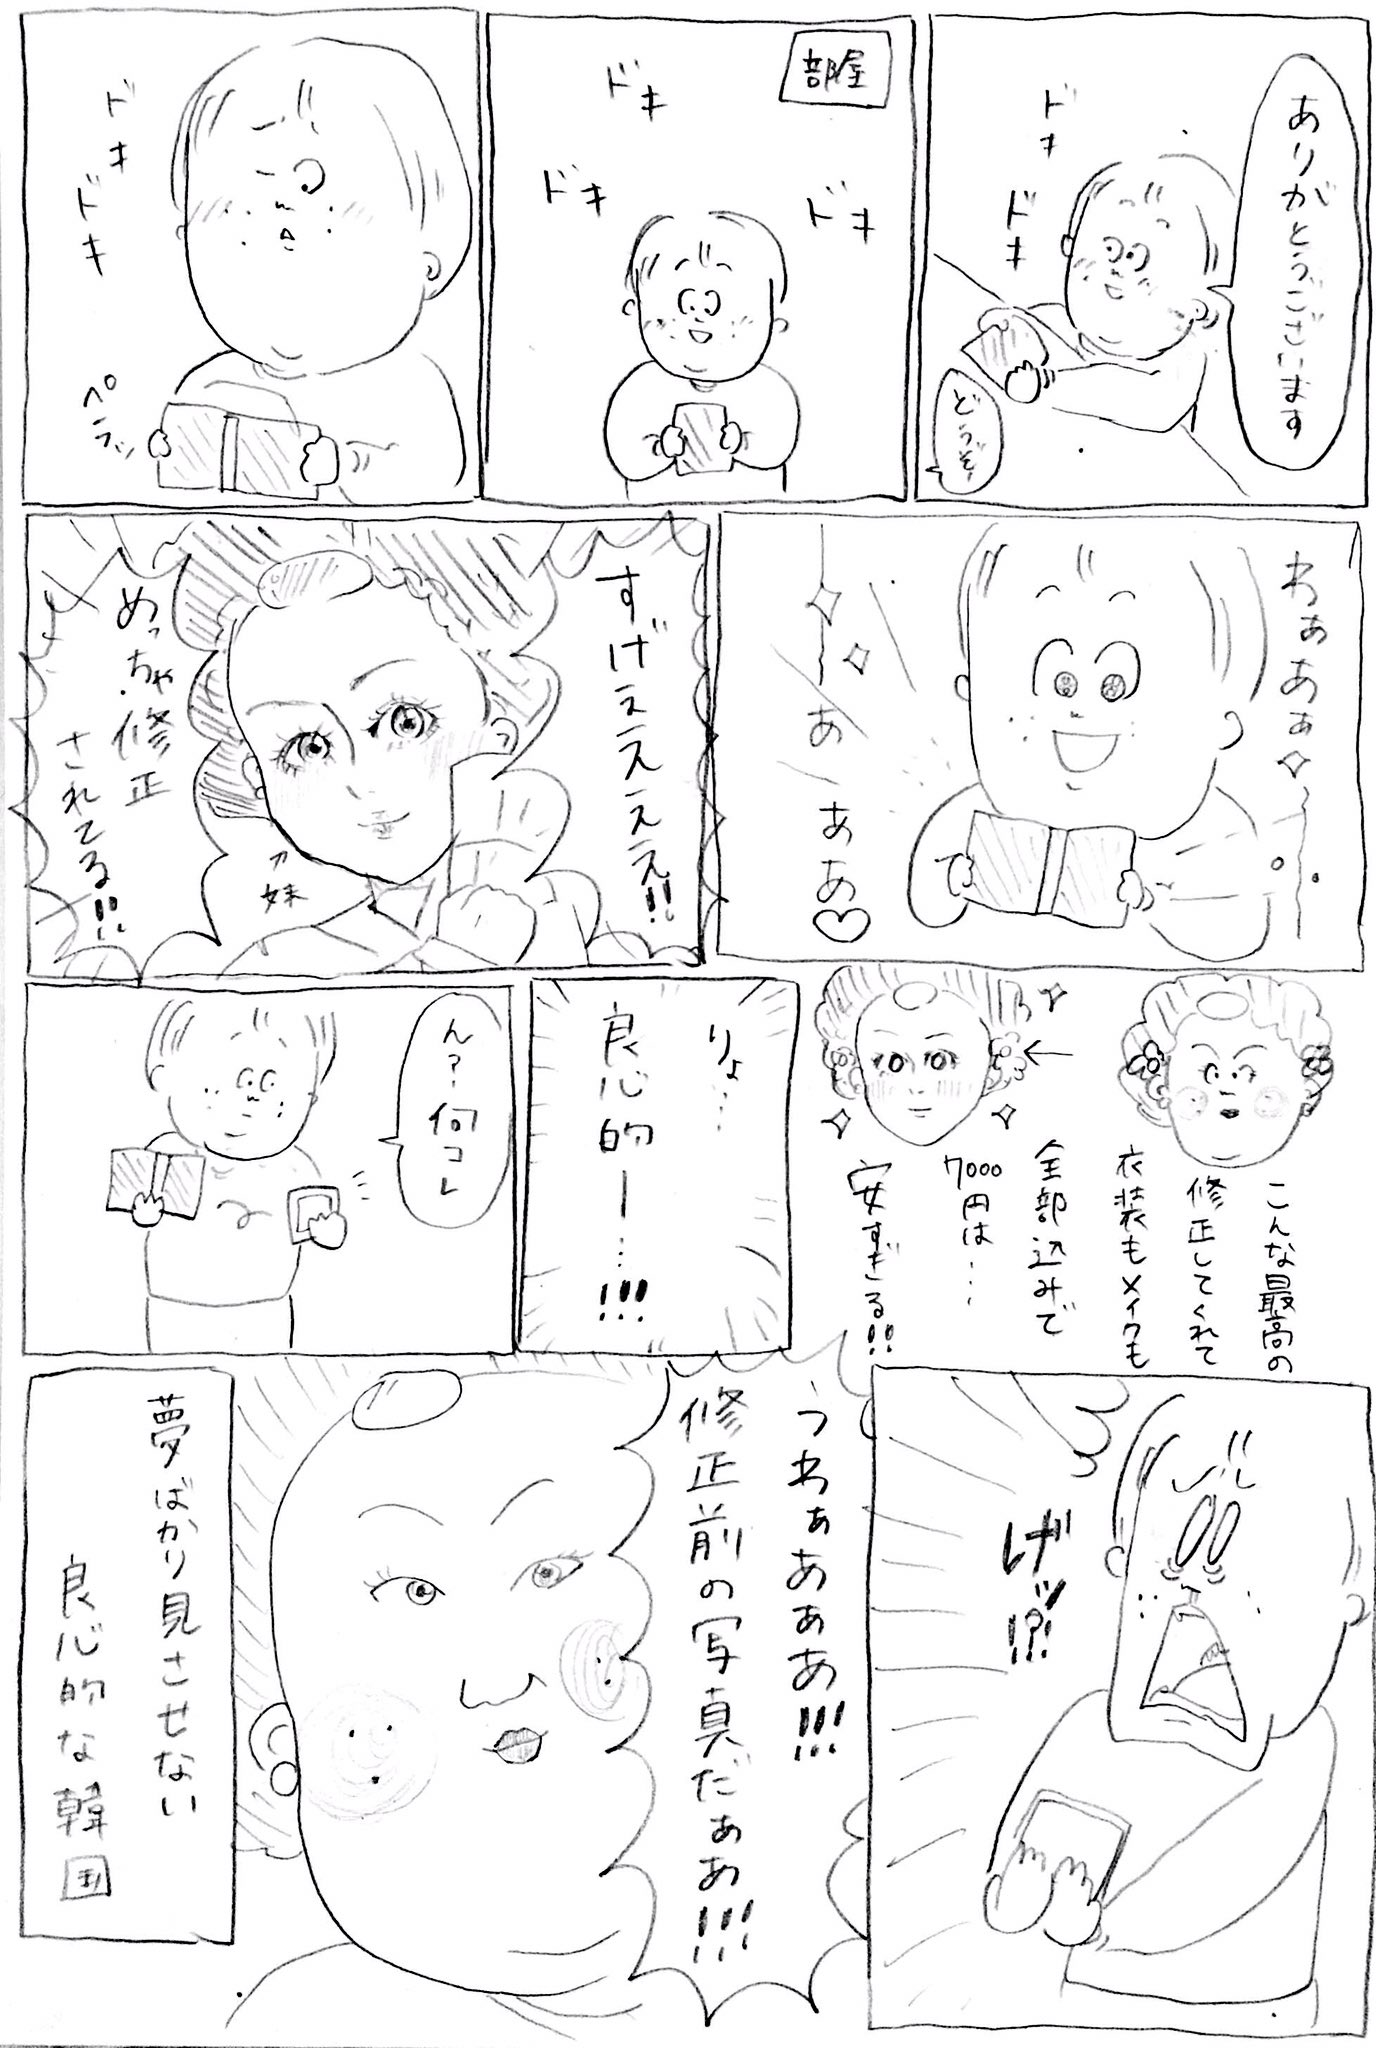 ありがとうございます
ドキ
ドキ
どうぞ
部屋
ドキ
ドキ
ドキ
ドキ
ドキ
ペラッ
わぁあぁ
あ
ああ♡
すげぇえええ!!
めっちゃ修正
されてる!!
↗妹
こんな最高の
修正してくれて
衣装もメイクも
全部込みで
7000円は…
安すぎる!!
りょ…
良心的ー…!!!
ん?何コレ
げッ!?!
うわぁあぁあ!!!
修正前の写真だぁあ!!!
夢ばかり見させない
良心的な韓国